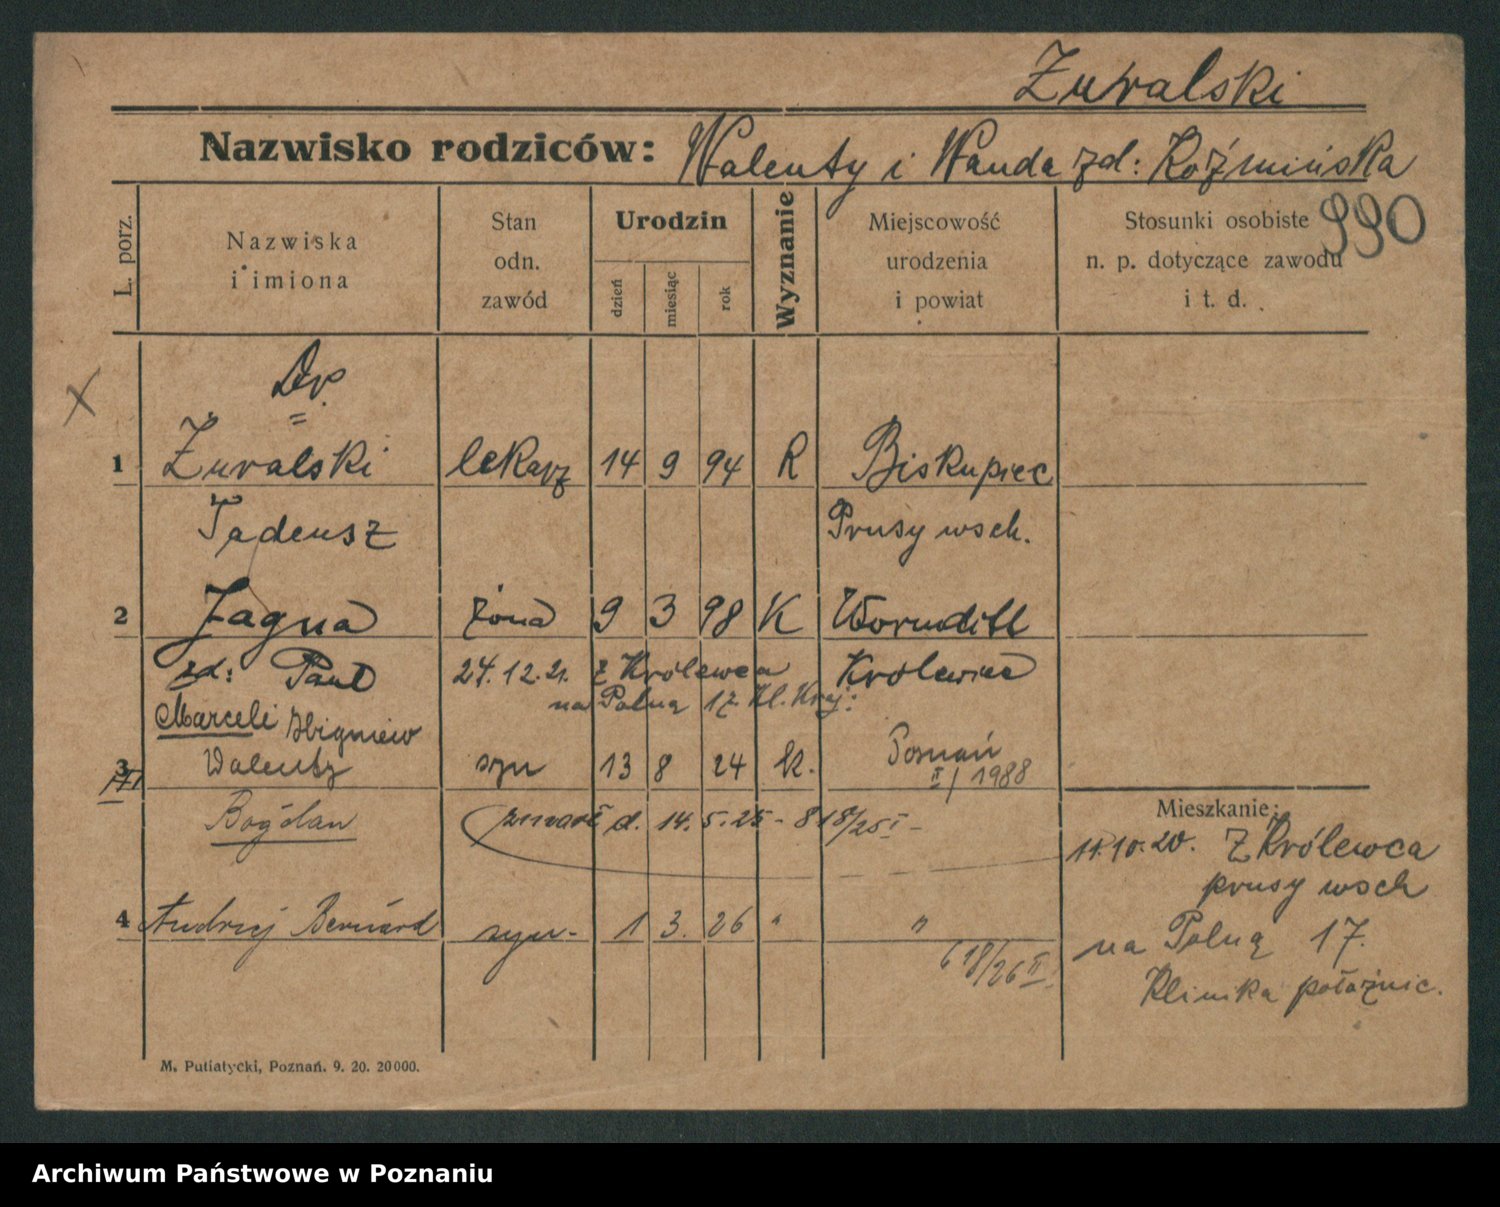 Żuralski
Nazwisko rodziców: Walenty i Wanda zd: Koźmińska
990
L. porz.
Nazwiska i imiona
Stan odn. zawód
Urodzin
dzień
miesiąc
rok
Wyznanie
Miejscowość urodzenia i powiat
Stosunki osobiste n. p. dotyczące zawodu i t. d.
X
Dr.
1 Żuralski lekarz 14 9 94 R Biskupiec
Tadeusz Prusy wsch.
2 Jagna żona 9 3 98 K Wormditt
zd: Paul 24.12.21. z Królewca Królewiec
na Polną 17. Kl. Kraj:
Marceli Zbigniew
3 Walenty syn 13 8 24 k. Poznań
II/1988
Bogdan zmarł d. 14.5.25 - 818/25 I -
Mieszkanie:
11.10.20. Z Królewca
prusy wsch
4 Andrzej Bernard syn - 1 3. 26 " "
na Polną 17.
618/26 II.
Klinika położnic.
M. Putiatycki, Poznań. 9. 20. 20000.
Archiwum Państwowe w Poznaniu